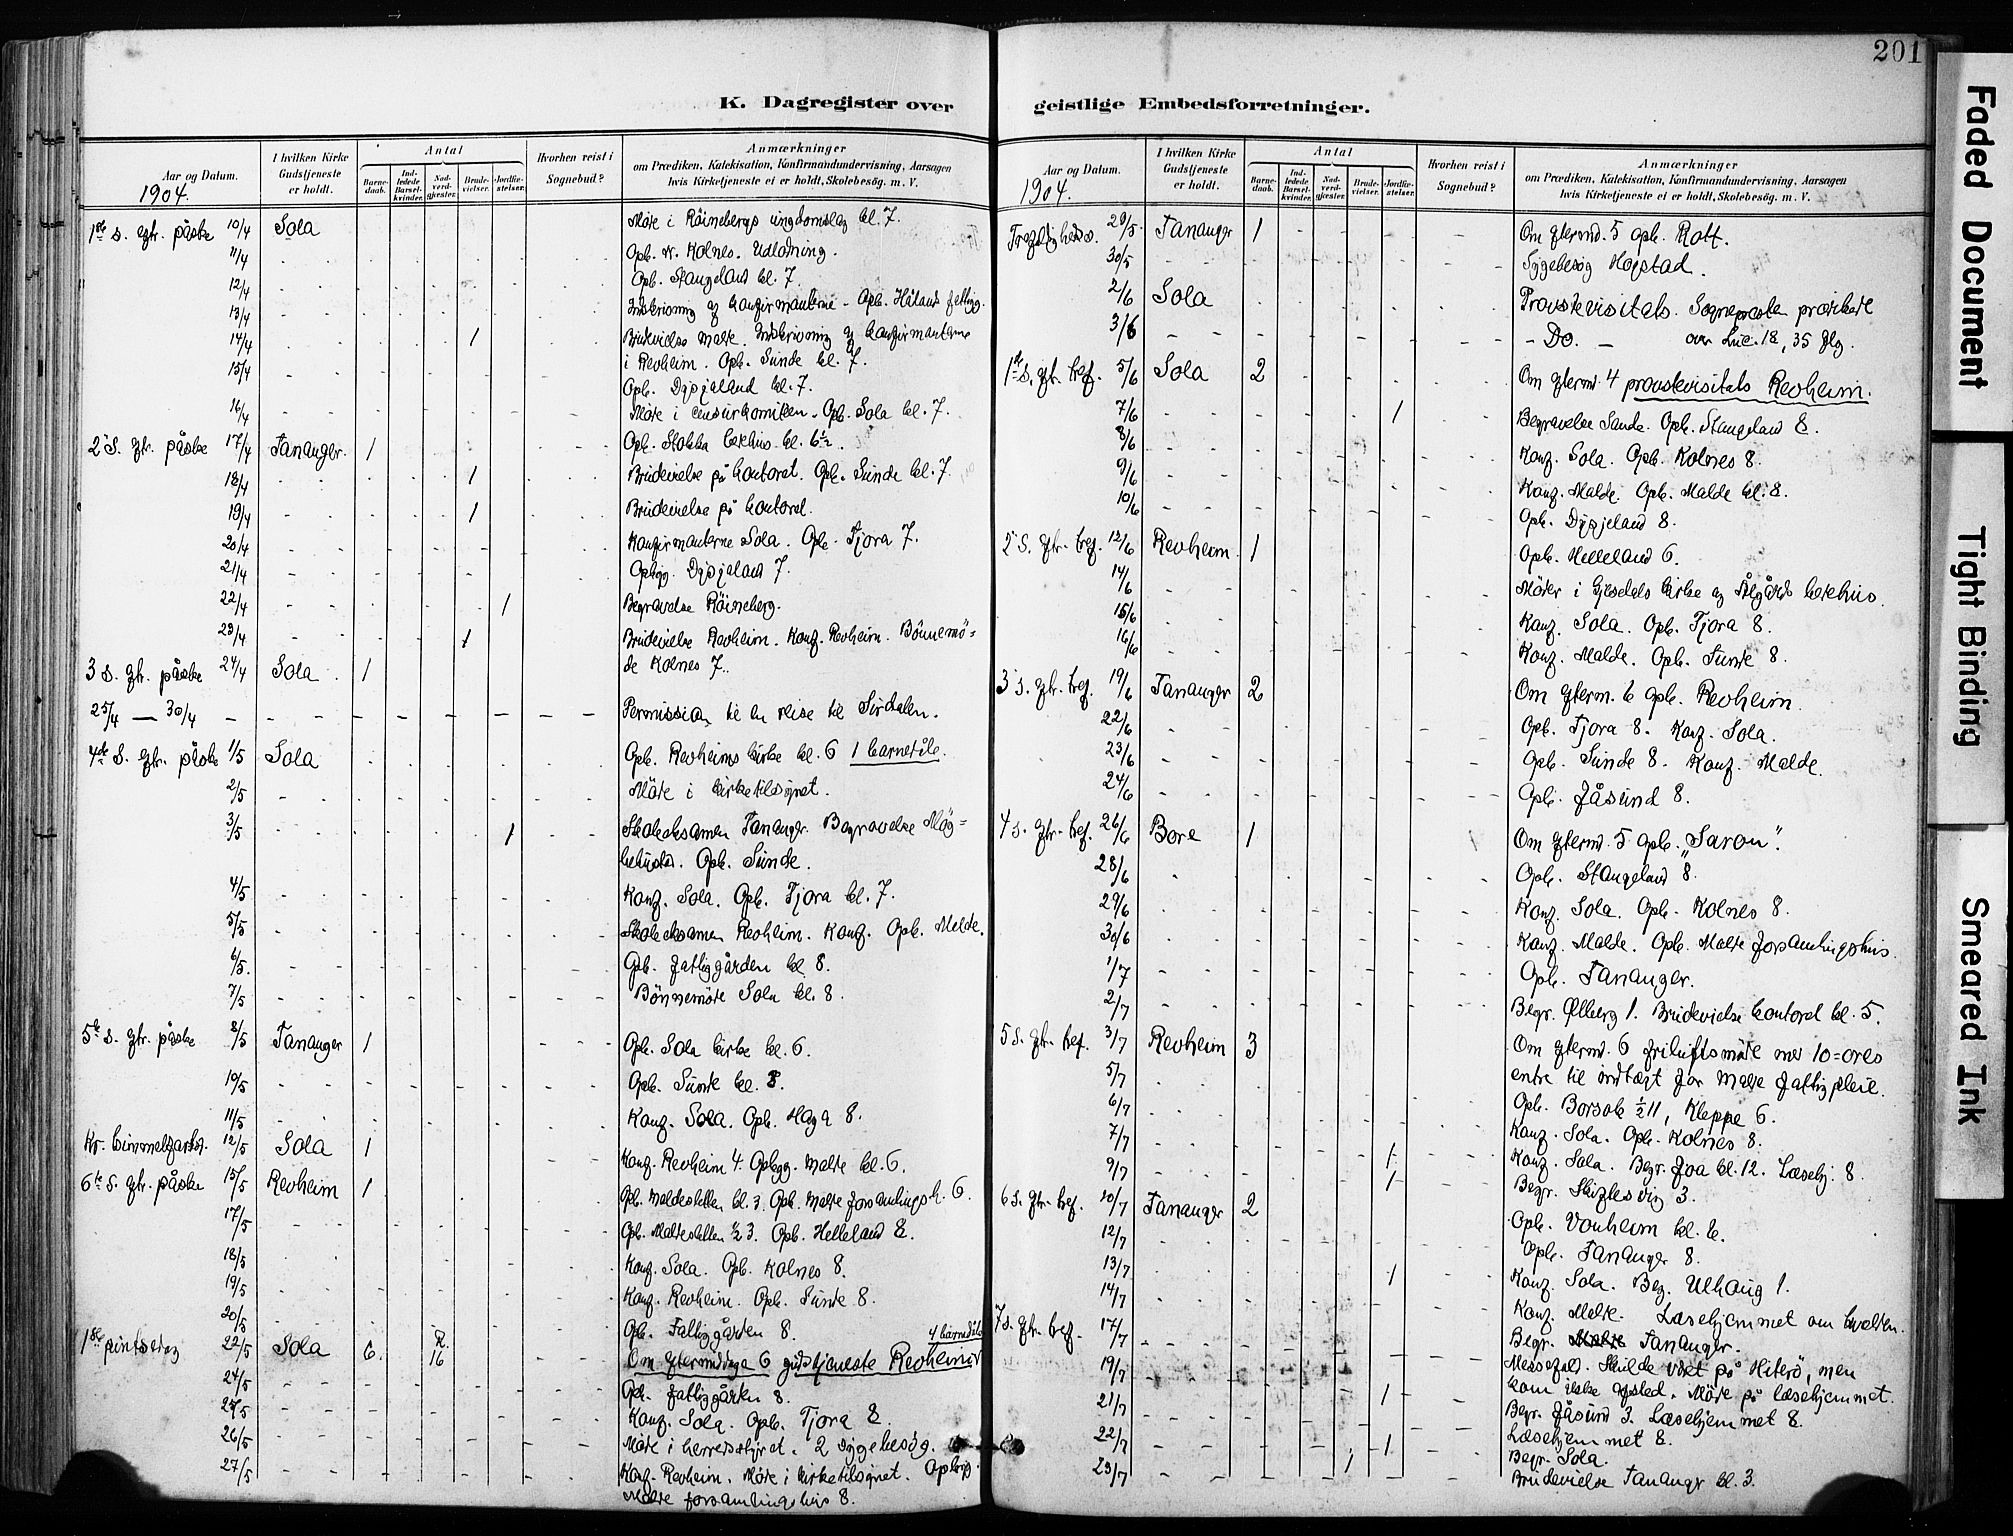 201
K. Dagregister over
Aar og Datum.
1904.
I hvilken Kirke Gudstjeneste er holdt.
Antal
Barnedaab.
Indledede Barselkvinder.
Nadverdgjester.
Brudevielser.
Jordfæstelser.
Hvorhen reist i Sognebud?
Anmærkninger
om Prædiken, Katekisation, Konfirmandundervisning, Aarsagen
hvis Kirketjeneste ei er holdt, Skolebesøg. m. V.
1ste s. eftr. påske 10/4 Sola Møte i Röinebergs ungdomslag kl. 7.
11/4 Opb. v. Kolnes. Udlodning.
12/4 Opb. Stangeland kl. 7.
13/4 Indskrivning af konfirmanterne - Opb. Håland fattigg.
14/4 1 Brudevielse Malde. Indskrivning af konfirmanterne
i Revheim. Opb. Sunde kl. 7.
15/4 Opb. Dysjeland kl. 7.
16/4 Møte i censurkomiteen. Opb. Sola kl. 7.
2 S. eftr. påske 17/4 Tananger. 1 Opb. Stokka bedehus kl. 6½.
18/4 1 Brudevielse på kontoret. Opb. Sunde kl. 7.
19/4 1 Brudevielse på kontoret.
20/4 Konfirmanterne Sola. Opb. Tjora 7.
21/4 Opbygg. Dysjeland 7.
22/4 1 Begravelse Röineberg.
23/4 1 Brudevielse Revheim. Konf. Revheim. Bönnemö=
de Kolnes 7.
3 s. eftr. påske 24/4 Sola 1
25/4 — 30/4 Permission til en reise til Sirdalen.
4de S. eftr. påske 1/5 Sola Opb. Revheims kirke kl. 6 1 barnedåb.
2/5 Møte i kirketilsynet.
3/5 1 Skoleeksamen Tananger. Begravelse Mög=
Opb. Sunde.
4/5 Konf. Sola. Opb. Tjora kl. 7.
5/5 Skoleeksamen Revheim. Konf. Opb. Melde.
6/5 Opb. fattiggården kl 8.
7/5 Bönnemöte Sola kl. 8.
5te s. eftr. påske 8/5 Tananger 1 Opb. Sola kirke kl. 6.
10/5 Opb. Sunde kl. 8.
11/5 Konf. Sola. Opb. Haga 8.
Kr. himmelfartsd. 12/5 Sola 1 Konf. Revheim 4. Opbygg. Malde kl. 6.
6te S. eftr. påske 15/5 Revheim 1 Opb. Meldesletten kl. 3. Opb. Malde forsamlingsh. 6.
17/5 Opb. Maldesletten ½3. Opb. Helleland 8.
18/5 Konf. Sola. Opb. Kolnes 8.
19/5 Konf. Revheim. Opb. Sunde 8.
20/5 Opb. Fattiggården 8.
1ste pintsedag 22/5 Sola 6 16 4 barnedåb
Om eftermiddage 6 gudstjeneste Revheim
24/5 Opb. fattiggården 8.
25/5 Konf. Sola. Opb. Tjora 8.
26/5 Møte i herredsstyret. 2 sygebesøg.
27/5 Konf. Revheim. Møte i kirketilsynet. Opbyg.
Malde forsamlingshus 8.
geistlige Embedsforretninger.
Aar og Datum.
1904.
I hvilken Kirke Gudstjeneste er holdt.
Antal
Barnedaab.
Indledede Barselkvinder.
Nadverdgjester.
Brudevielser.
Jordfæstelser.
Hvorhen reist i Sognebud?
Anmærkninger
om Prædiken, Katekisation, Konfirmandundervisning, Aarsagen
hvis Kirketjeneste ei er holdt, Skolebesøg. m. V.
Trefoldigheds s. 29/5 Tananger 1 Om eftermd. 5 opb. Rott.
30/5 Sygebesøg Hogstad.
2/6 Sola Provstevisitats. Sognepresten prædikede
3/6 - Do. - over Luc. 18, 35 flg.
1ste s. eft. tref. 5/6 Sola 2 Om efterm. 4 provstevisitats Revheim.
7/6 1 Begravelse Sande. Opb. Stangeland 8.
8/6 Konf. Sola. Opb. Kolnes 8.
9/6 Konf. Malde. Opb. Malde kl. 8.
10/6 Opb. Dysjeland 8.
2 S. eftr. tref. 12/6 Revheim. 1 Opb. Helleland 6.
14/6 Møter i Gjesdals kirke og Ålgårds bedehus.
15/6 Konf. Sola. Opb. Tjora 8.
16/6 Konf. Malde. Opb. Sunde 8.
3 s. eftr. tref. 19/6 Tananger 2 Om efterm. 6 opb. Revheim.
22/6 Opb. Tjora 8. Konf. Sola.
23/6 Opb. Sunde 8. Konf. Malde.
24/6 Opb. Jåsund 8.
4 s. eftr. tref. 26/6 Bore 1 Om eftermd. 5 opb. „Saron".
28/6 Opb. Stangeland 8.
29/6 Konf. Sola. Opb. Kolnes 8.
30/6 Konf. Malde. Opb. Malde forsamlingshus.
1/7 Opb. Tananger.
2/7 Begr. Ølberg 1. Brudevielse kontoret kl. 5.
5 s. eftr. tref. 3/7 Revheim 3 Om eftermd. 6 friluftsmøte med 10-øres
5/7 entre til indtægt for Malde fattigpleie.
6/7 Opb. Borsok ½11, Kleppe 6.
7/7 Konf. Sola. Opb. Kolnes 8.
9/7 1 Konf. Sola. Begr. Joa kl. 12. Læsehj. 8
1 Begr. Skiftesvig 3.
6 s. eftr. tref. 10/7 Tananger 2 Opb. Vonheim kl. 6.
12/7 Opb. Tananger 8.
13/7 1 Konf. Sola. Beg. Ulhaug 1.
14/7 Konf. Malde. Læsehjemmet om kvelden.
7 s. eftr. tref. 17/7 Begr. Tananger.
19/7 Messefald. Skulde vært på Hiterö, men
21/7 1 kom ikke afsted. Møte på læsehjemmet.
Begr. Jåsund 3. Læsehjemmet 8.
22/7 1 Læsehjemmet 8.
Begr. Sola.
23/7 1 Brudevielse Tananger kl. 3.
Faded Document
Tight Binding
Smeared Ink